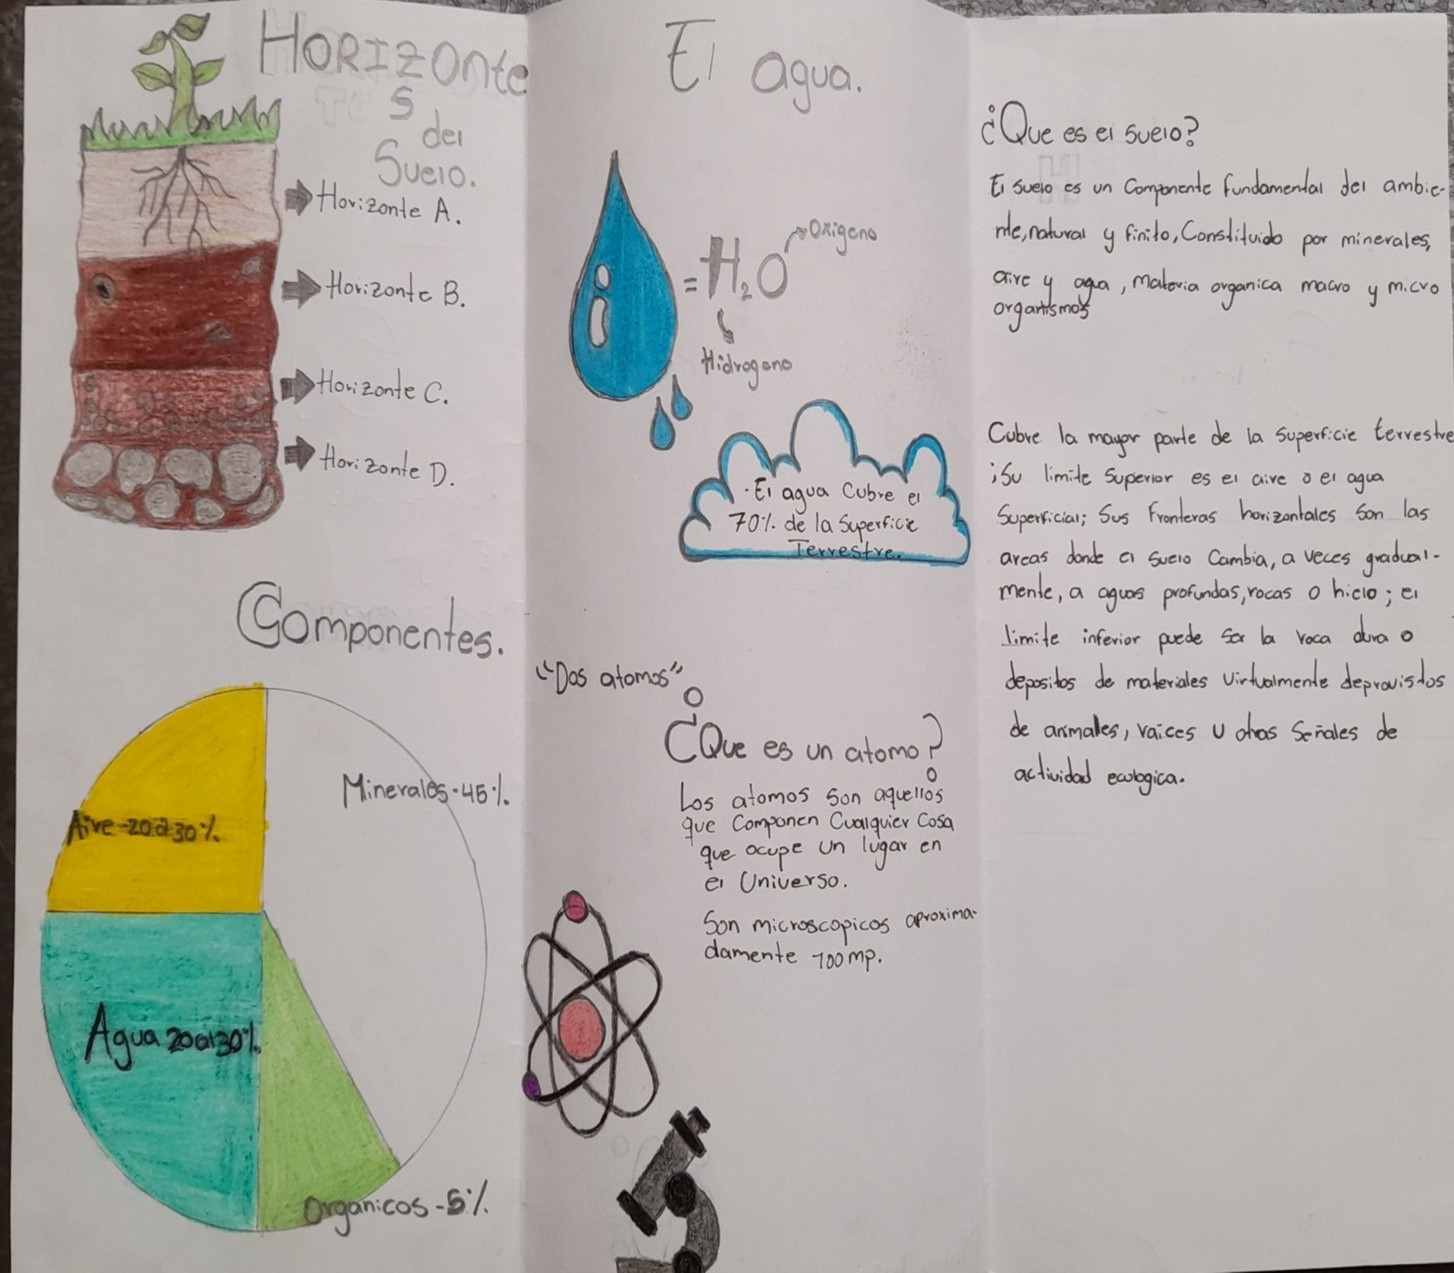 Horizonte
s
del
Suelo.
Horizonte A.
Horizonte B.
Horizonte C.
Horizonte D.
Componentes.
Minerales-45%.
Aire-20a30%
Agua 20a30%.
Organicos-5%.
El agua.
=H₂O
Oxigeno
Hidrogeno
·El agua Cubre el
70% de la Superficie
Terrestre.
"Dos atomos"
¿Que es un atomo?
Los atomos son aquellos
que Componen Cualquier Cosa
que ocupe un lugar en
el Universo.
Son microscopicos aproxima-
damente 100mp.
¿Que es el suelo?
El suelo es un Componente fundamental del ambie-
nte, natural y finito, Constituido por minerales,
aire y agua, materia organica macro y micro
organismos
Cubre la mayor parte de la superficie terrestre
;Su limite Superior es el aire o el agua
Superficial; Sus Fronteras horizontales Son las
areas donde el suelo Cambia, a veces gradual-
mente, a aguas profundas, rocas o hielo; el
limite inferior puede ser la roca dura o
depositos de materiales virtualmente deprovistos
de animales, raices u otras Señales de
actividad ecologica.